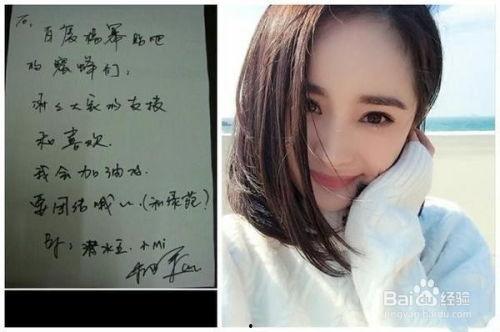 To.
百度杨幂贴吧
的蜜蜂们：
谢谢大家的支持
和喜欢.
我会加油
要团结哦~~
By: 潜水王. 小Mi
Baidu经验
jingyan.baidu.com